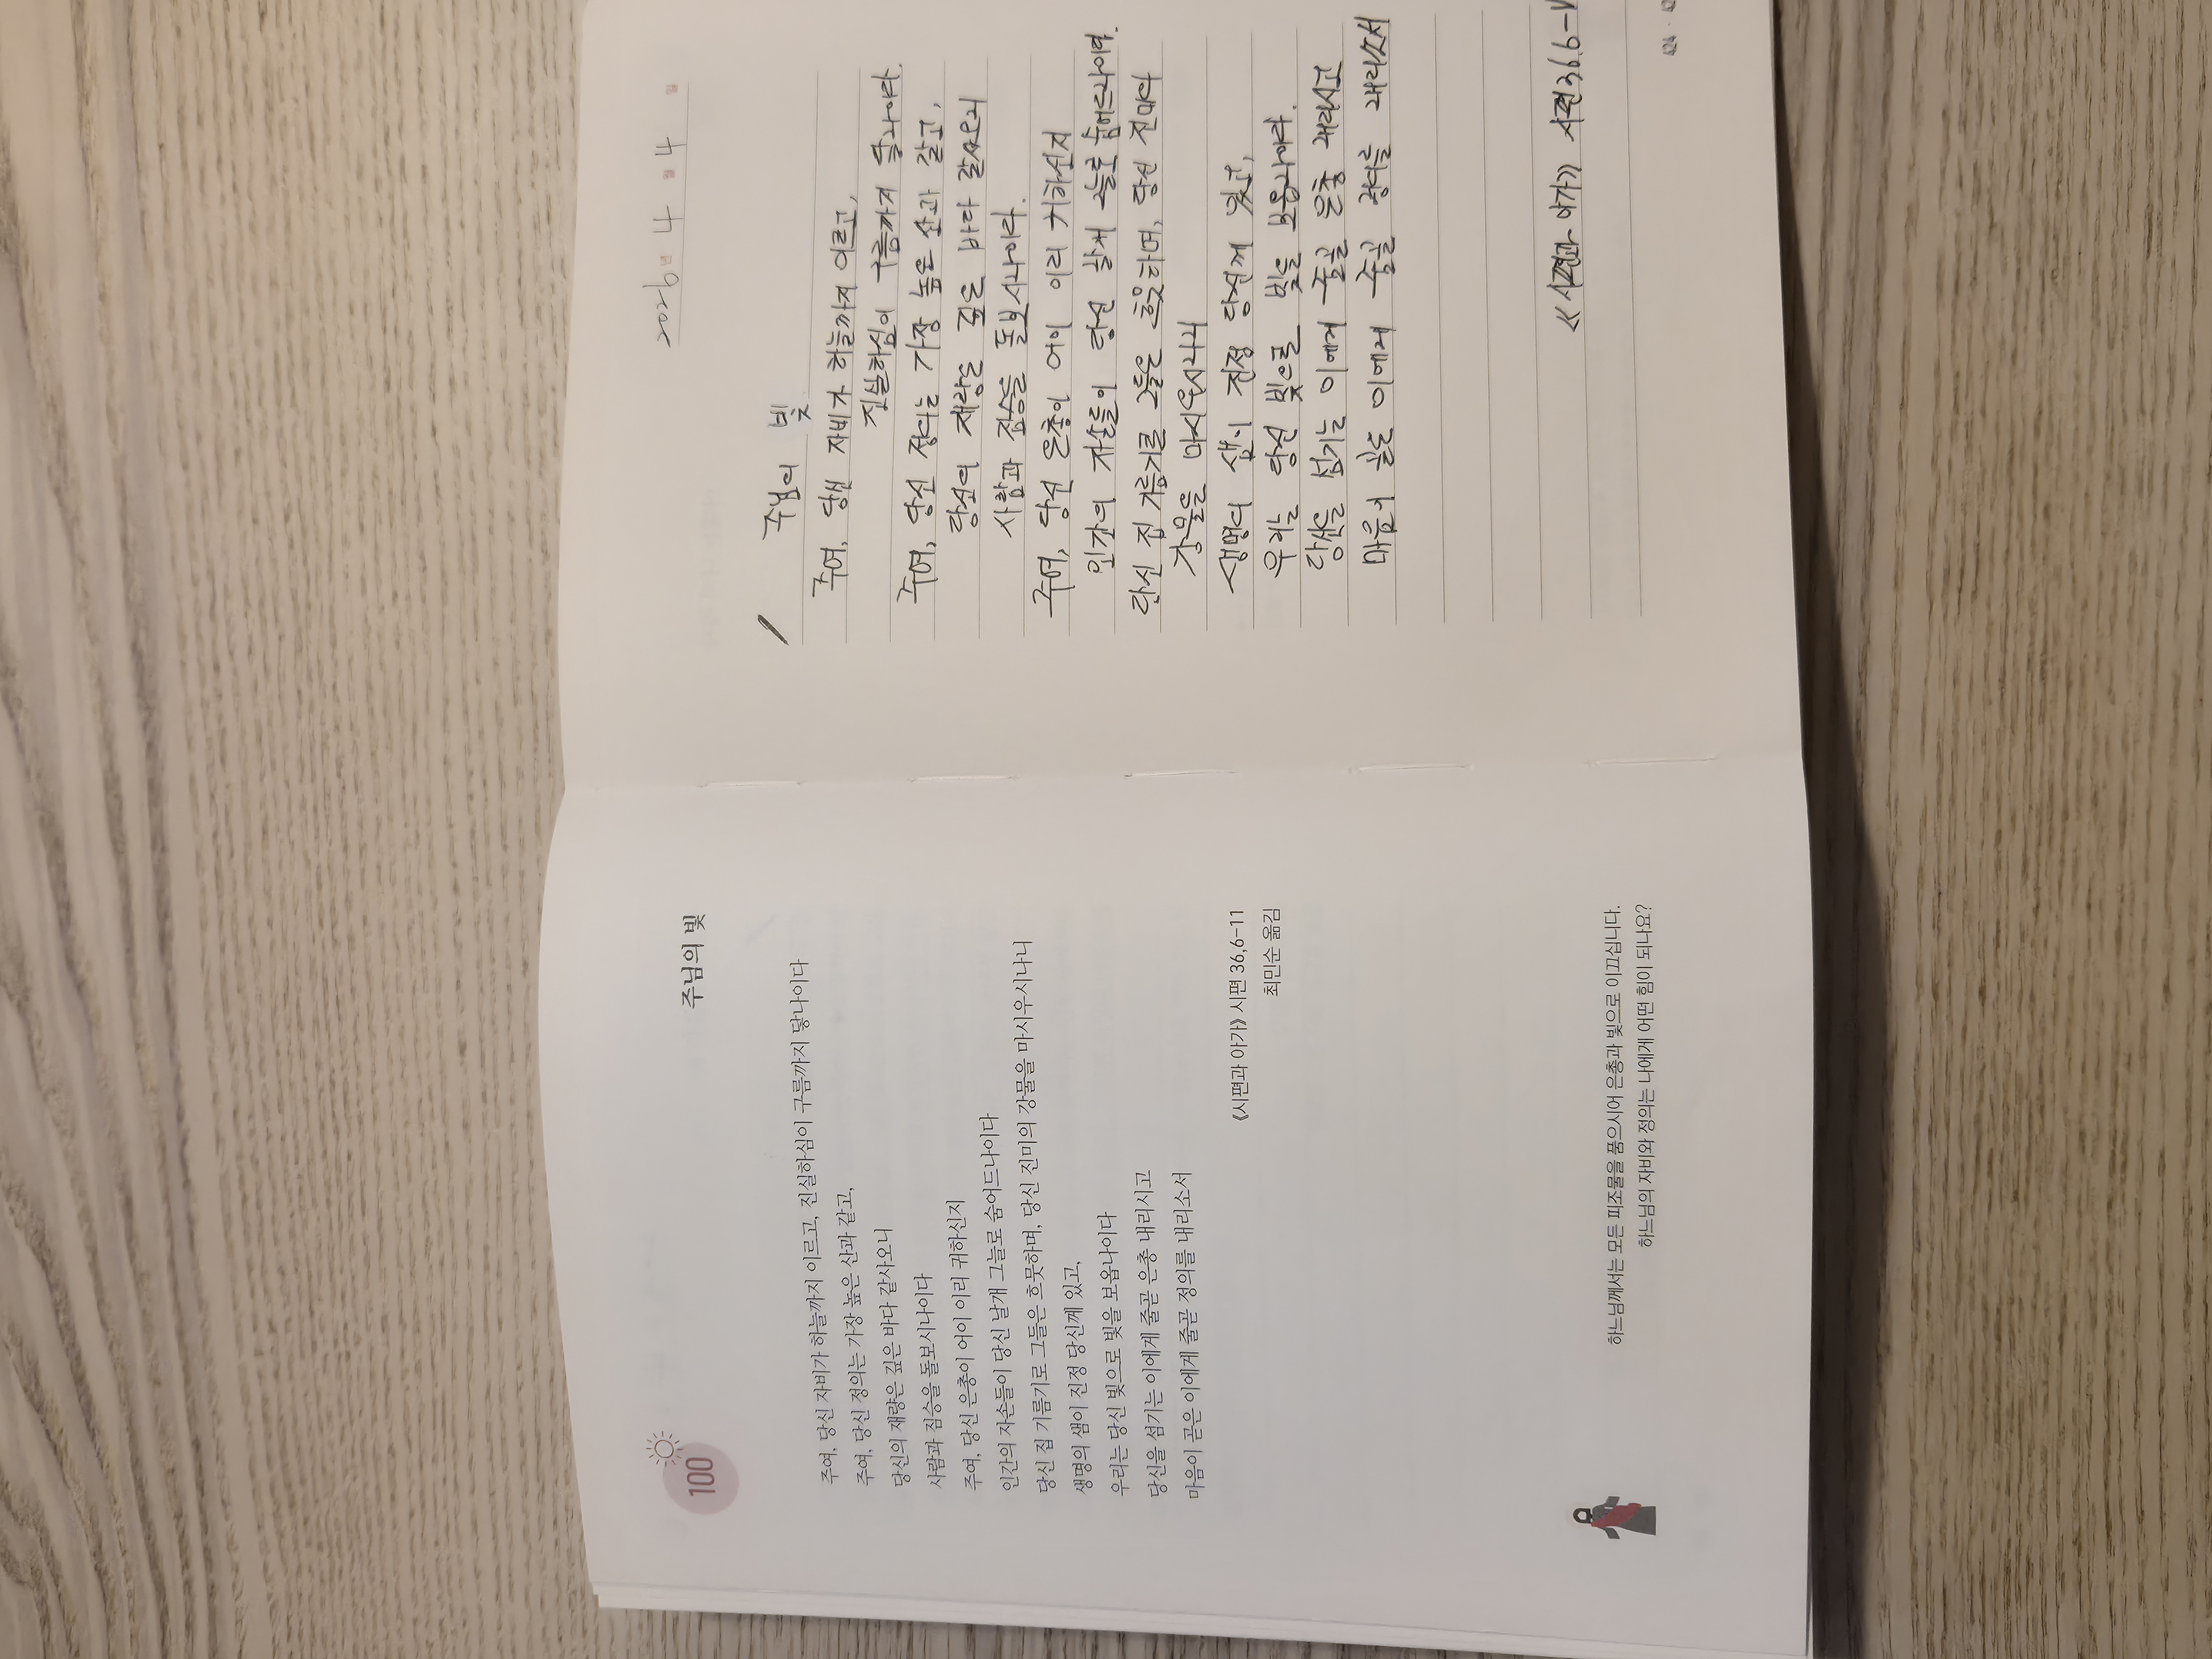 100
주님의 빛
주여, 당신 자비가 하늘까지 이르고, 진실하심이 구름까지 닿나이다
주여, 당신 정의는 가장 높은 산과 같고,
당신의 재량은 깊은 바다 같사오니
사람과 짐승을 돌보시나이다
주여, 당신 은총이 어이 이리 귀하신지
인간의 자손들이 당신 날개 그늘로 숨어드나이다
당신 집 기름기로 그들은 흐뭇하며, 당신 진미의 강물을 마시우시나니
생명의 샘이 진정 당신께 있고,
우리는 당신 빛으로 빛을 보옵나이다
당신을 섬기는 이에게 줄곧 은총 내리시고
마음이 곧은 이에게 줄곧 정의를 내리소서
《시편과 아가》 시편 36,6-11
최민순 옮김
하느님께서는 모든 피조물을 품으시어 은총과 빛으로 이끄십니다.
하느님의 자비와 정의는 나에게 어떤 힘이 되나요?
2026년 4월 4일
주님의 빛
주여, 당신 자비가 하늘까지 이르고,
진실하심이 구름까지 닿나이다.
주여, 당신 정의는 가장 높은 산과 같고,
당신의 재량은 깊은 바다 같사오니
사람과 짐승을 돌보시나이다.
주여, 당신 은총이 어이 이리 귀하신지
인간의 자손들이 당신 날개 그늘로 숨어드나이다.
당신 집 기름기로 그들은 흐뭇하며, 당신 진미의
강물을 마시우시나니
생명의 샘이 진정 당신께 있고,
우리는 당신 빛으로 빛을 보옵나이다.
당신을 섬기는 이에게 줄곧 은총 내리시고
마음이 곧은 이에게 줄곧 정의를 내리소서
《시편과 아가》 시편 36.6-
424 · 42